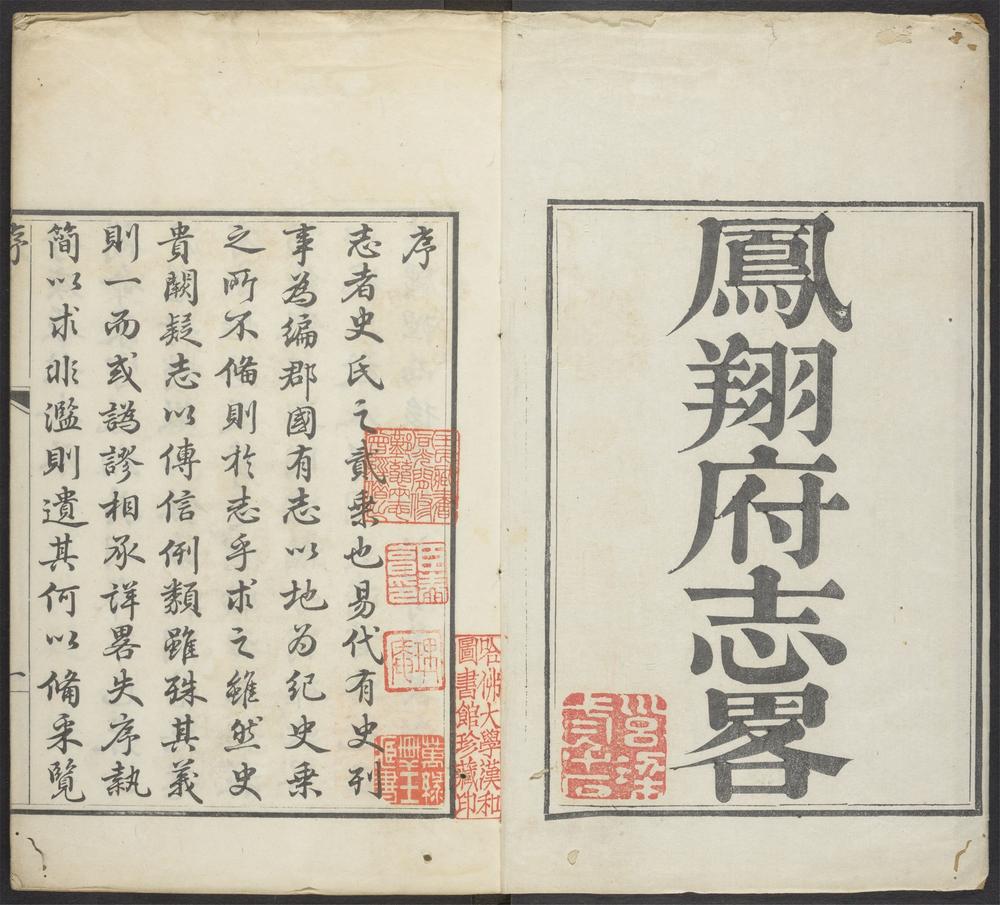 鳳翔府志畧
序
志者史氏之貳乗也易代有史刋
事為編郡國有志以地为纪史乗
之所不偹則扵志乎求之雖然史
貴闕疑志以傳信例類雖殊其義
則一而或譌謬相承详畧失序執
簡以求非濫則遺其何以偹采覽
序
一
哈佛大學漢和
圖書館珍藏印